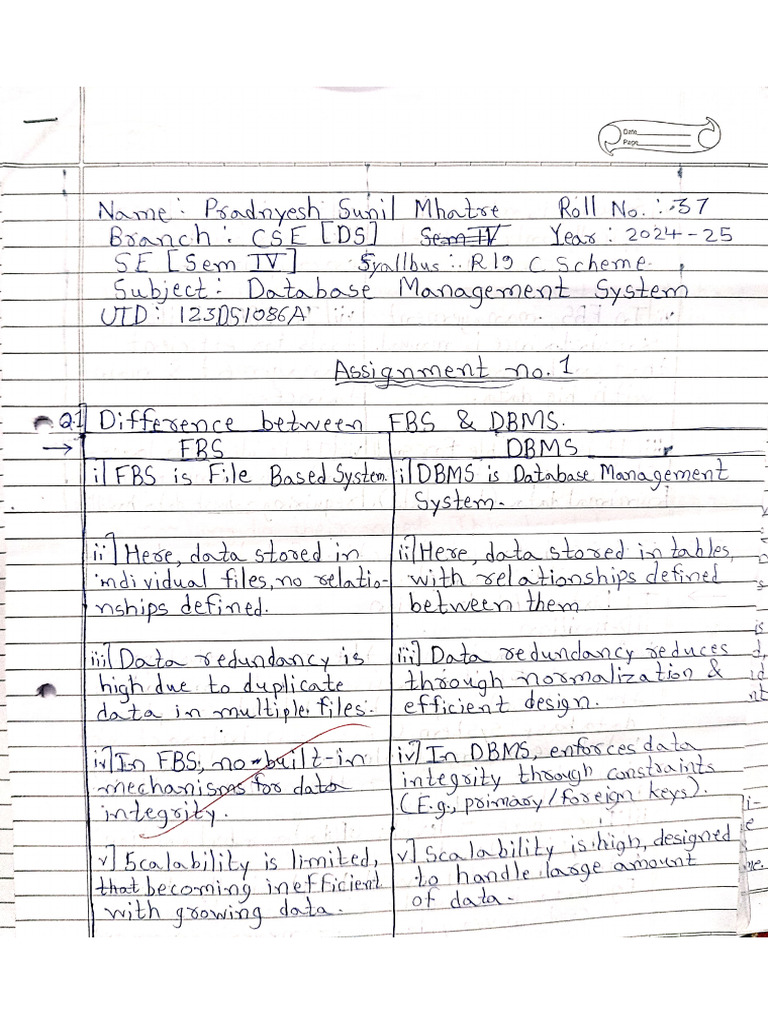 Date
Page
Name: Pradnyesh Sunil Mhatre Roll No.: 37
Branch: CSE [DS] Sem IV Year: 2024-25
SE [Sem IV] Syallbus: R19 C Scheme
Subject: Database Management System
UID: 123DS1086A
Assignment no. 1
Q.1] Difference between FBS & DBMS.
→ FBS DBMS
i] FBS is File Based System. i] DBMS is Database Management
System.
ii] Here, data stored in ii] Here, data stored in tables,
individual files, no relatio- with relationships defined
nships defined. between them.
iii] Data redundancy is iii] Data redundancy reduces
high due to duplicate through normalization &
data in multiple files. efficient design.
iv] In FBS, no built-in iv] In DBMS, enforces data
mechanisms for data integrity through constraints
integrity. (E.g., primary/foreign keys).
v] Scalability is limited, v] Scalability is high, designed
that becoming inefficient to handle large amount
with growing data. of data.